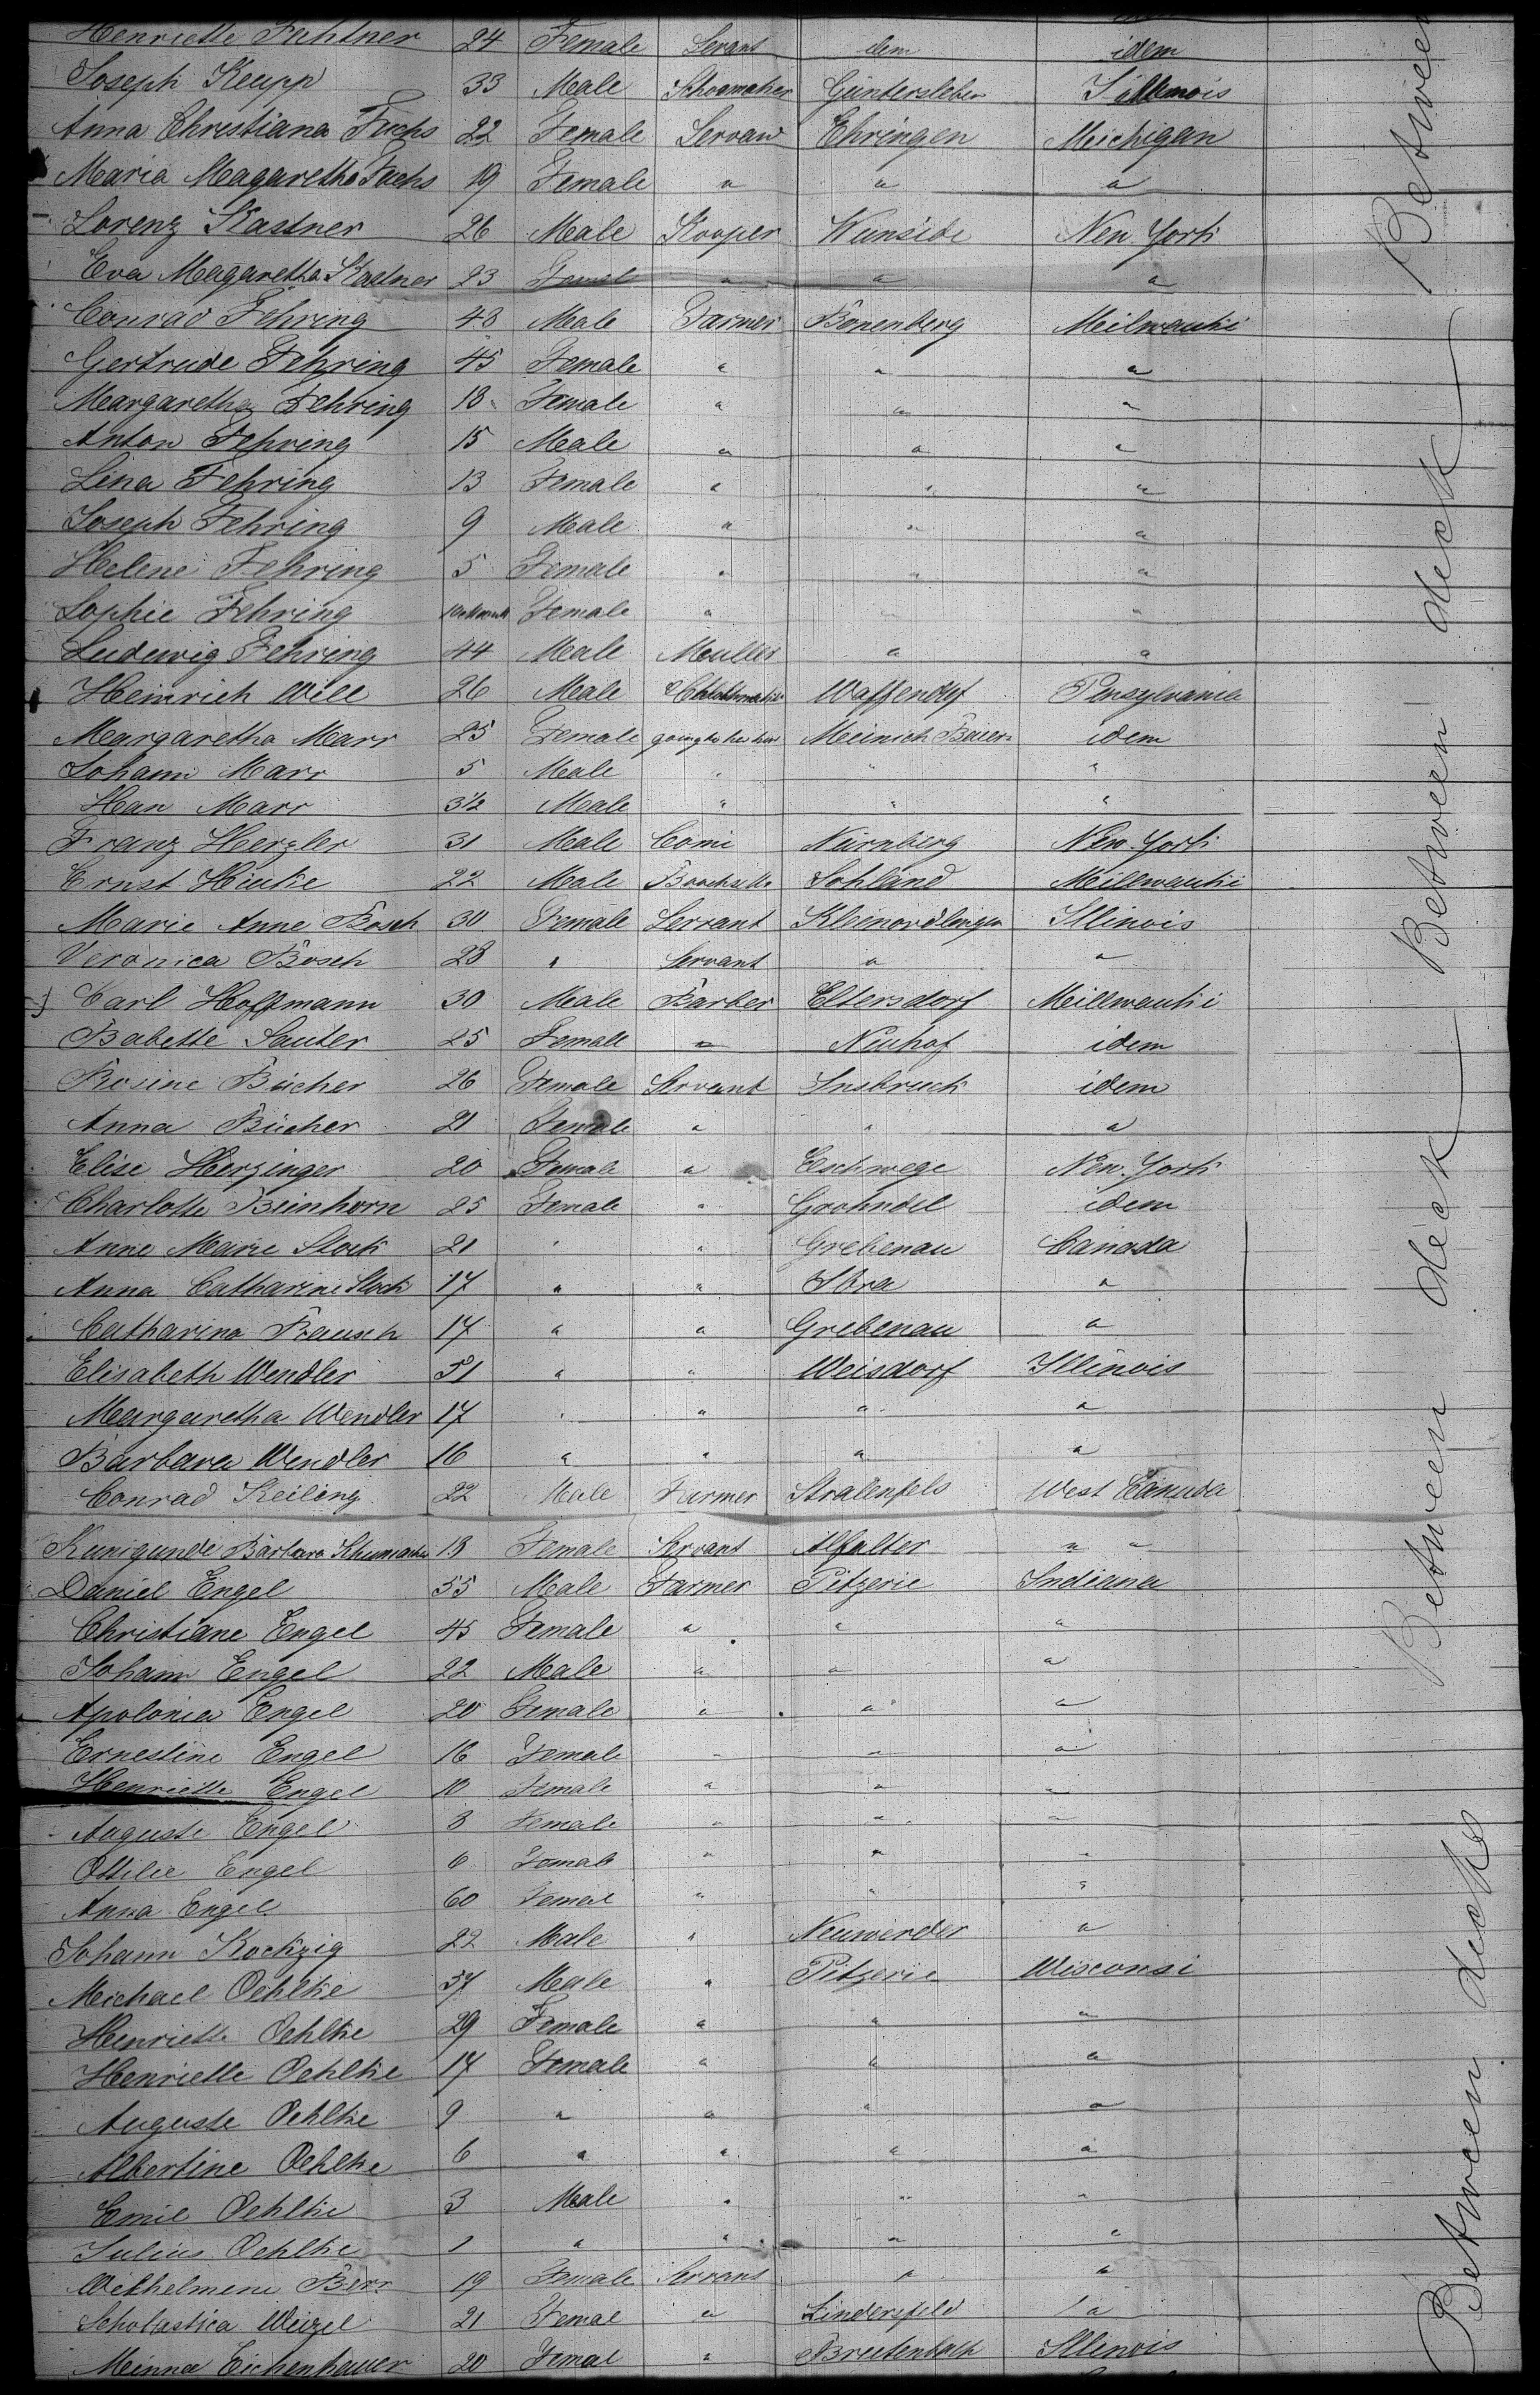 Henriette Fichtner 24 Female Servant idem idem
Joseph Keupp 33 Male Schoomaker Güntersleben Illinois
Anna Christiana Fuchs 22 Female Servant Ehringen Michigan
Maria Magaretha Fuchs 19 Female " " "
Lorenz Kastner 26 Male Kooper Wunside New York
Eva Magaretha Kastner 23 Femal " " "
Conrad Fehring 48 Male Farmer Bonenberg Meilwauki
Gertrude Fehring 45 Female " " "
Margaretha Fehring 18 Female " " "
Anton Fehring 15 Male " " "
Lina Fehring 13 Female " " "
Joseph Fehring 9 Male " " "
Helene Fehring 5 Female " " "
Sophie Fehring Female " " "
Ludewig Fehring 44 Male Muller " "
Heinrich Will 26 Male Waffendorf Pensylvania
Margaretha Marr 25 Female going to her Meinich Baiern idem
Johann Marr 5 Male " " "
Han Marr 3½ Male " " "
Franz Herzler 31 Male Comi Nürnberg New York
Ernst Hiuke 22 Male Sohland Millwauki
Marie Anne Bosch 30 Female Servant Kleinordlingen Illinois
Veronica Bosch 28 " Servant " "
Carl Hoffmann 30 Male Barber Eltersdorf Millwauki
Babette Sauter 25 Female " Neuhof idem
Rosine Bücher 26 Female Servant Insbruck idem
Anna Bücher 21 Female " " "
Elise Herzinger 20 Female " Eschwege New York
Charlotte Beinhorn 25 Female " Grohndel idem
Anne Marie Stock 21 " " Grebenau Canada
Anna Catharine Stock 17 " " Ibra "
Catharina Rausch 17 " " Grebenau "
Elisabeth Wendler 51 " " Weisdorf Illinois
Margaretha Wendler 17 " " " "
Barbara Wendler 16 " " " "
Conrad Keiling 22 Male Farmer Stralenfels West Canada
Kunigunde Barbara Schumacher 18 Female Servant Alfalter " "
Daniel Engel 55 Male Farmer Pitzerie Indiana
Christiane Engel 45 Female " " "
Johann Engel 22 Male " " "
Apolonia Engel 20 Female " " "
Ernestine Engel 16 Female " " "
Henriette Engel 10 Female " " "
Auguste Engel 8 Female " " "
Ottilie Engel 6 Female " " "
Anna Engel 60 Femal " " "
Johann Kockzig 22 Male " Neuwerder "
Michael Oehlke 37 Male " Pitzerie Wisconsi
Henriette Oehlke 29 Female " " "
Henriette Oehlke 17 Female " " "
Auguste Oehlke 9 " " " "
Albertine Oehlke 6 " " " "
Emil Oehlke 3 Male " " "
Julius Oehlke 1 " " " "
Wilhelmene Berr 19 Female Servant " "
Scholastica Weizel 21 Femal " Lindersfeld "
Minna Eichenhauer 20 Femal " Breitenbach Illinois
Between
Between deck
Between deck
Between decks